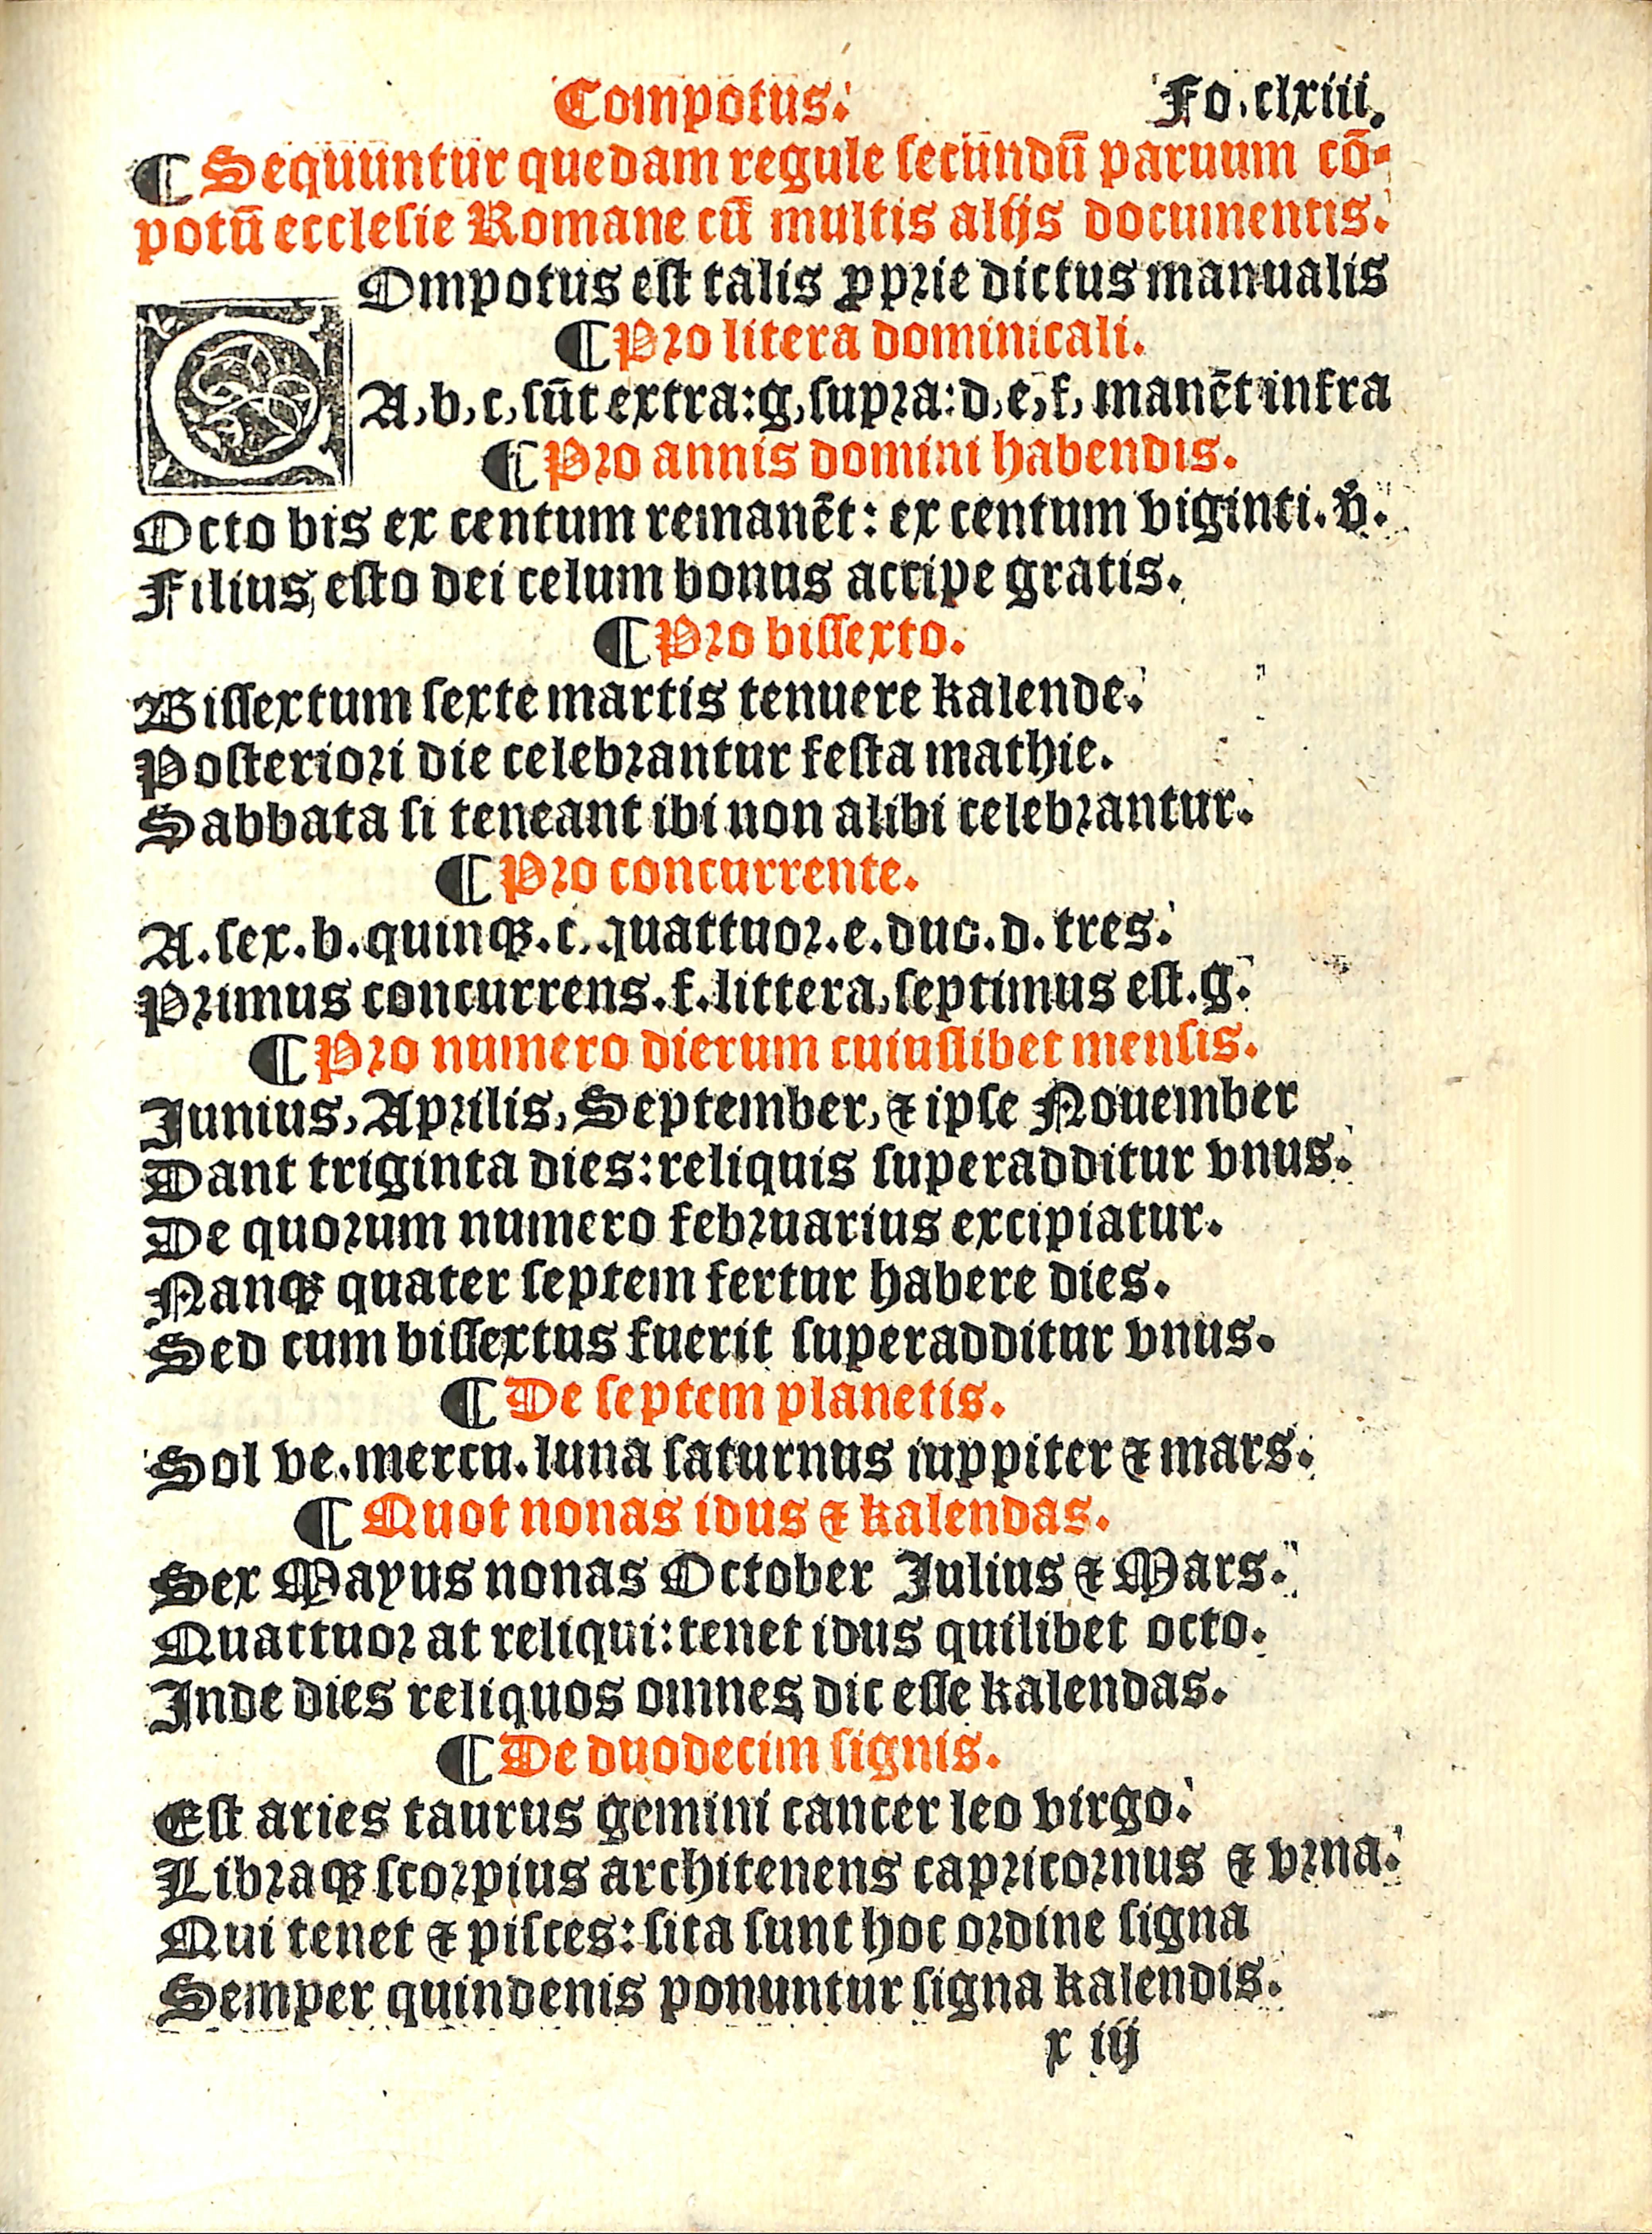 Compotus. Fo.clxiii.
¶ Sequuntur quedam regule secundū paruum cō-
potū ecclesie Romane cū multis alijs documentis.
COmpotus est talis ꝓprie dictus manualis
¶ Pro litera dominicali.
A, b, c, sūt extra: g, supra: d, e, f, manēt infra
¶ Pro annis domini habendis.
Octo bis ex centum remanēt: ex centum viginti. v̄.
Filius, esto dei celum bonus accipe gratis.
¶ Pro bissexto.
Bissextum sexte martis tenuere kalende.
Posteriori die celebrantur festa mathie.
Sabbata si teneant ibi non alibi celebrantur.
¶ Pro concurrente.
A. sex. b. quinqꝫ. c. quattuor. e. duo. d. tres.
Primus concurrens. f. littera, septimus est. g.
¶ Pro numero dierum cuiuslibet mensis.
Junius, Aprilis, September, ⁊ ipse Nouember
Dant triginta dies: reliquis superadditur vnus.
De quorum numero februarius excipiatur.
Nanqꝫ quater septem fertur habere dies.
Sed cum bissextus fuerit superadditur vnus.
¶ De septem planetis.
Sol ve. mercu. luna saturnus iuppiter ⁊ mars.
¶ Quot nonas idus ⁊ kalendas.
Sex Mayus nonas October Julius ⁊ Mars.
Quattuor at reliqui: tenet idus quilibet octo.
Inde dies reliquos omnes dic esse kalendas.
¶ De duodecim signis.
Est aries taurus gemini cancer leo virgo.
Libraqꝫ scorpius architenens capricornus ⁊ vrna.
Qui tenet ⁊ pisces: sita sunt hoc ordine signa
Semper quindenis ponuntur signa kalendis.
x iij